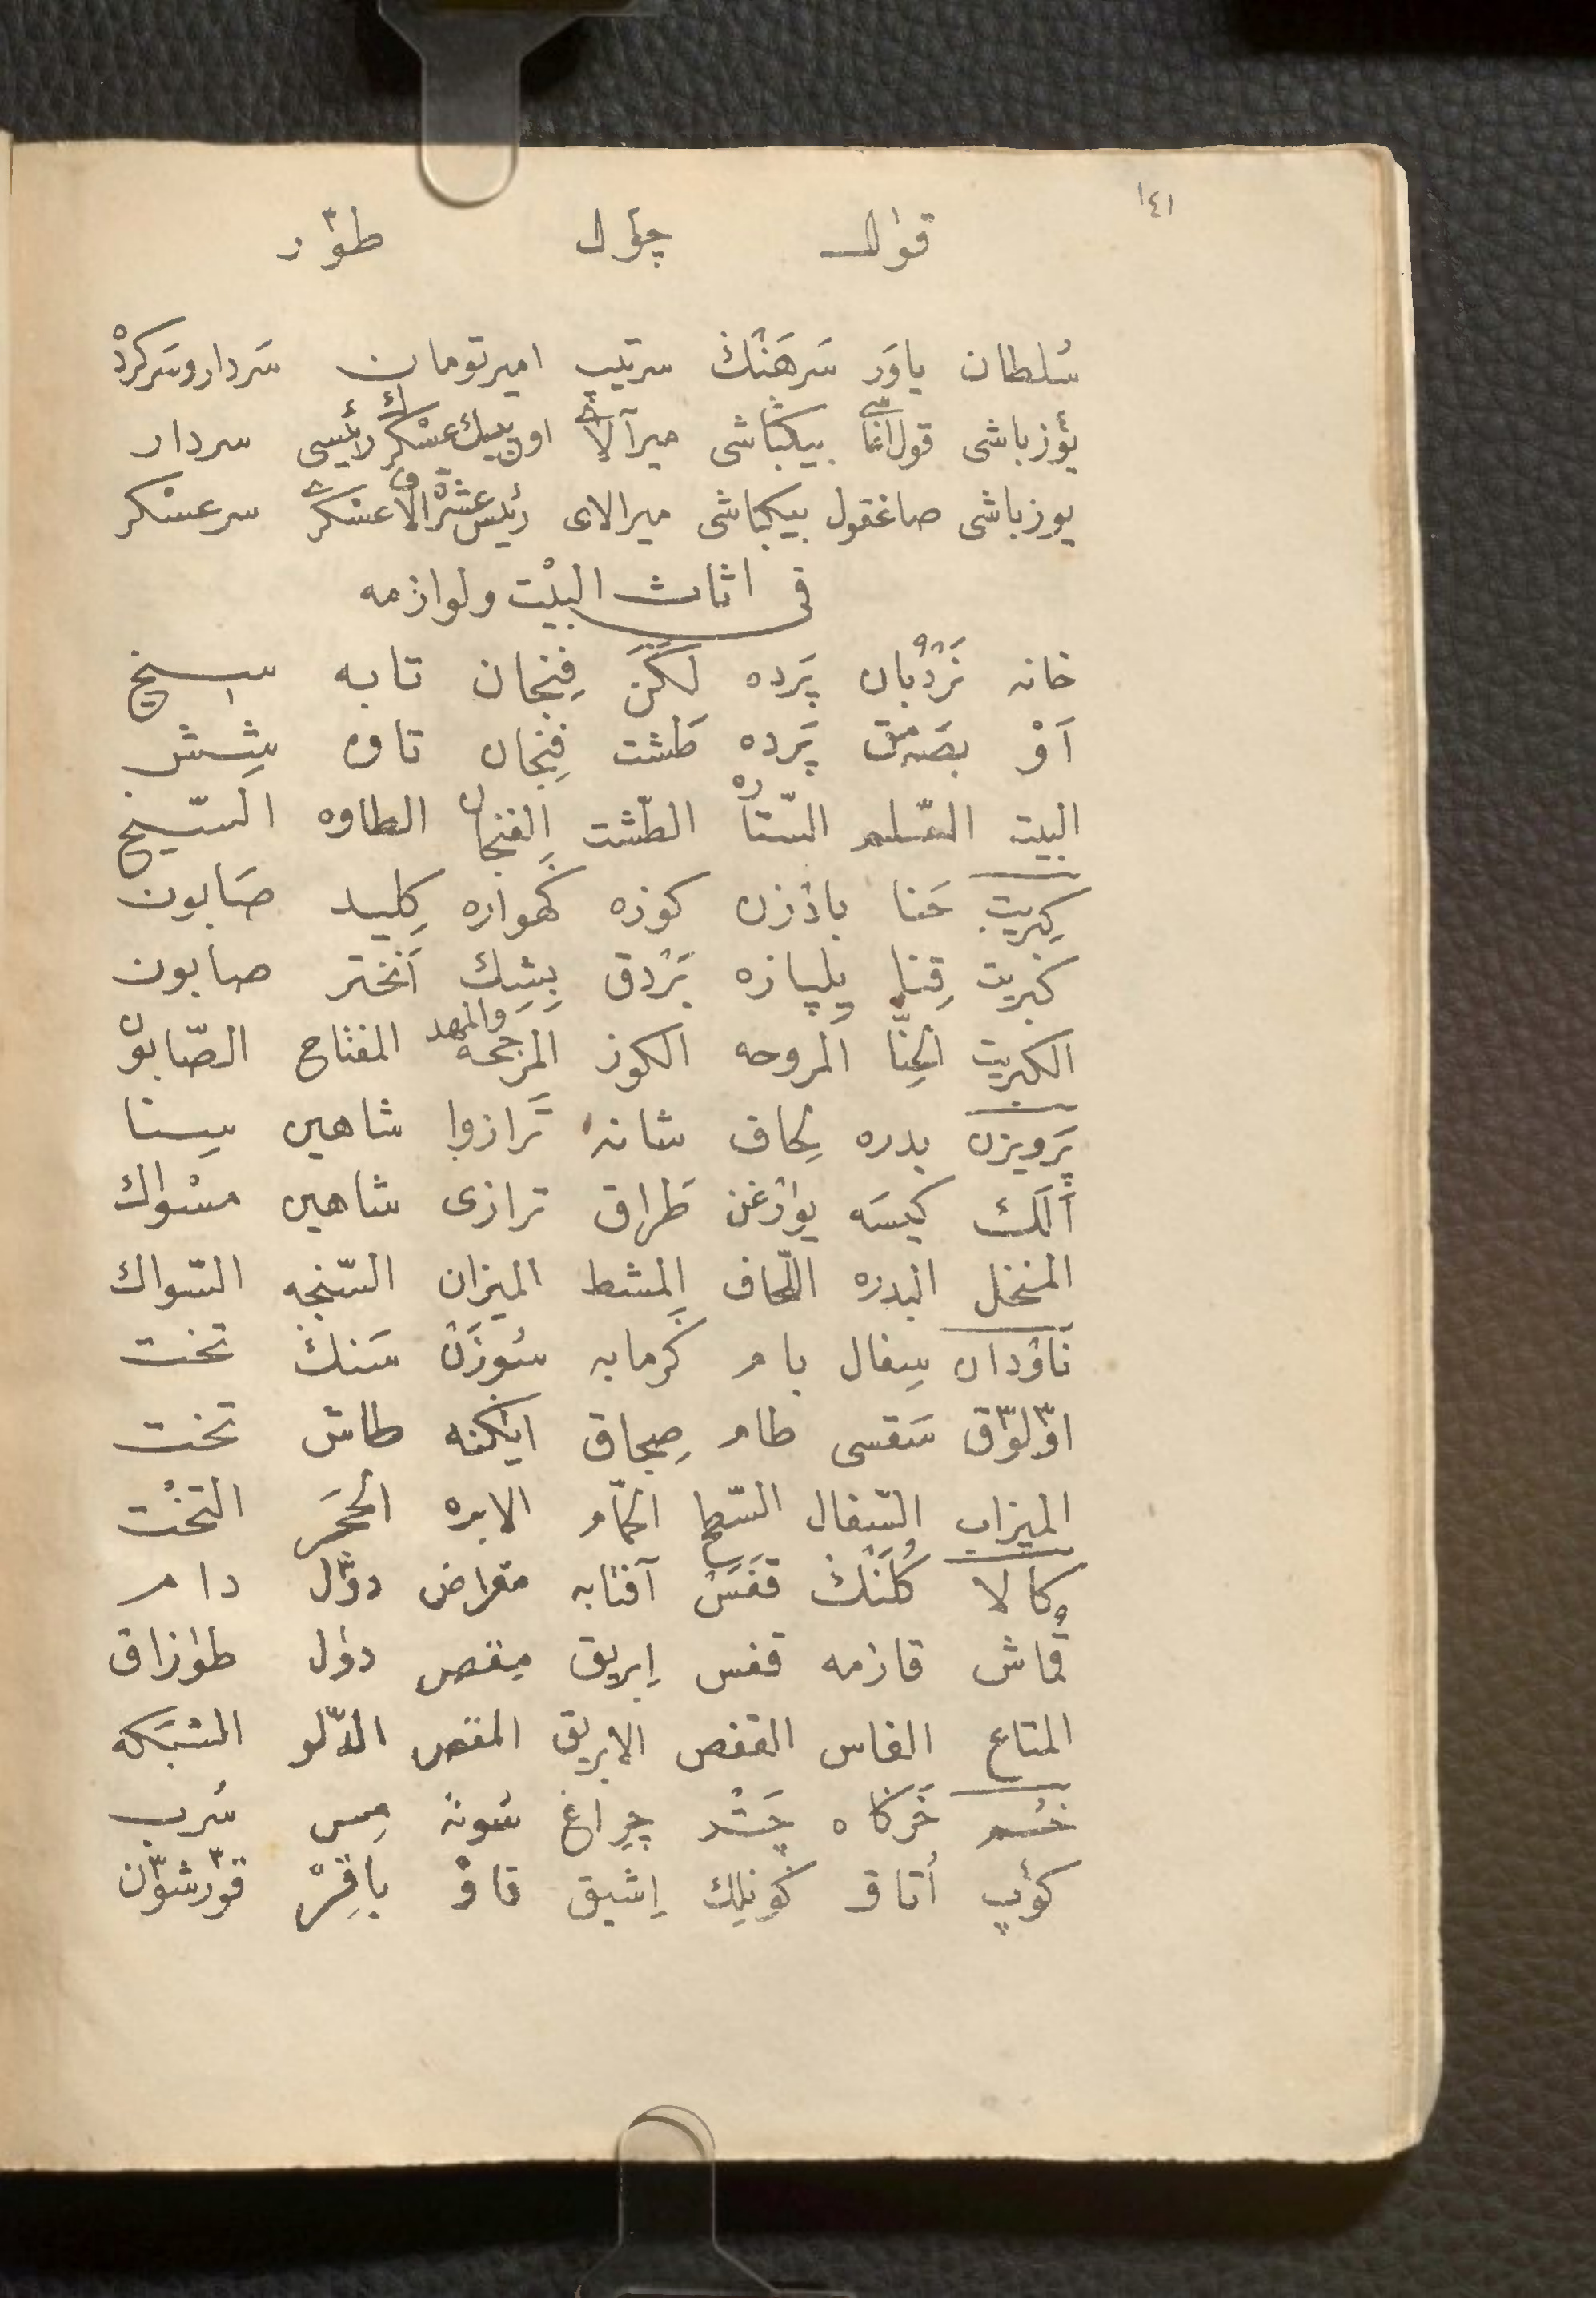 ١٤١
قوال چؤل طوّر
سُلطان ياوَر سَرهَنك سرتيپ اميرتومان سَردار وسَركردْه
يؤزباشى قول اغاسى بيكباشى ميرآلاى اون بيك عسْكرڭ رئيسى سردار
يوزباشى صاغقول بيكباشى ميرالاى رئيس عشرة الاف عسْكرى سرعسْكر
فى اثاث البيْت ولوازمه
خانه نَرْدُبان پَرده لَكَن فِنجان تابه سيخ
اَوْ بصَمق پَرده طَشت فِنجان تاوه شِيش
البيت السّلم السّتاره الطّشت الفنجان الطاوه السّيخ
كِبريت حَنا بادزن كوزه گهواره كِليد صَابون
كبريت قِنا يلپازه بَرْدق بِشِك اَنختر صابون
الكبريت الحِنّا المروحه الكوز المرجحه والمهد المفتاح الصّابون
پَرويزن بدره لِحاف شانهٔ تَرازوا شاهين سِنا
اَلَك كيسَه يوازغن طَراق ترازى شاهين مسْواك
المنخل البدره اللّحاف المشط الميزان السّنجه السّواك
نَاوْدان سِفال بام گرمابه سُوزَن سَنك تخت
اوّلوّق سَقسى طام صِجاق ايكنه طاش تخت
الميزاب السّفال السّطح الحمّام الابره الحجَر التّخْت
كالا كُلَنْك قفَسْ آفتابه مقراض دوّل دام
قُماش قازمه قفس اِبريق مِقص دؤل طؤزاق
المتاع الفاس القفص الابريق المقص الدّلو الشبَكه
خُم خَركاه چَشْد چِراغ سُونهٔ مِس سُرب
كؤپ اُتاق كؤنيلِك اِشيق قاوْ باقِرْ قوّرشوّن